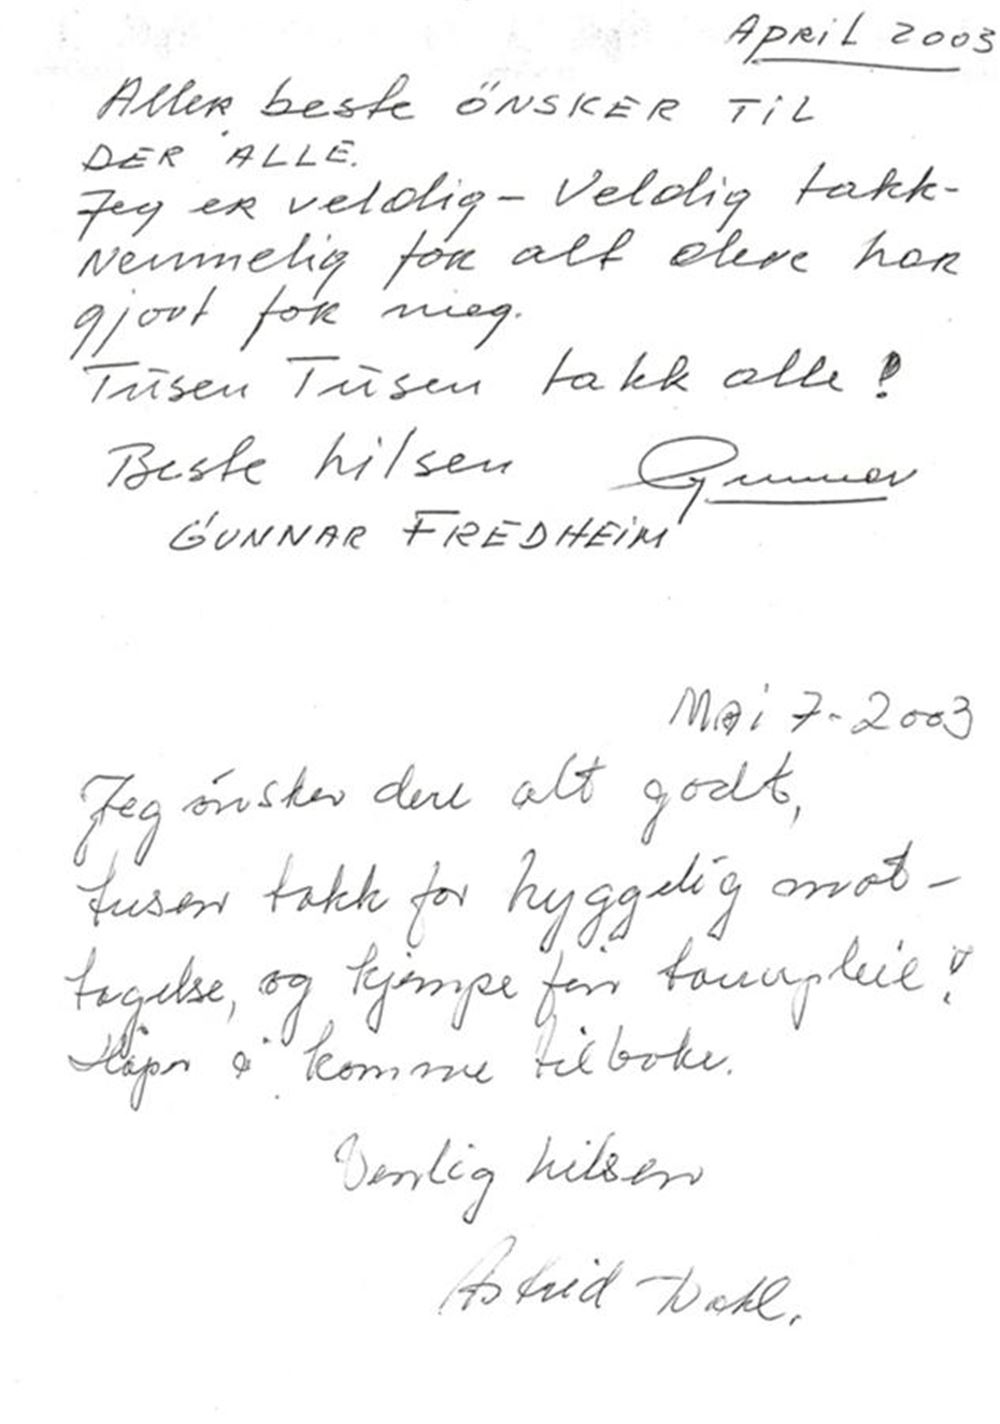 April 2003
Aller beste önsker til
der alle.
Jeg er veldig - Veldig takk-
nemmelig for alt dere har
gjort for meg.
Tusen Tusen takk alle!
Beste hilsen Gunnar
GUNNAR FREDHEIM
Mai 7-2003
Jeg ønsker dere alt godt,
tusen takk for hyggelig mot-
tagelse, og kjempe fin tannpleie!
Håper å komme tilbake.
Venlig hilsen
Astrid Dahl.